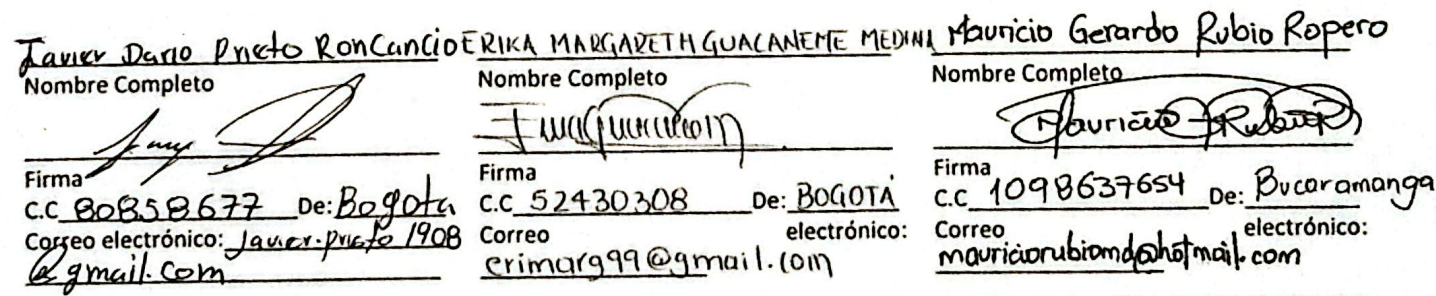 Javier Dario Prieto Roncancio
Nombre Completo
Firma
C.C 80858677 De: Bogota
Correo electrónico: Javier.prieto1908
@gmail.com
ERIKA MARGARETH GUACANEME MEDINA
Nombre Completo
Firma
C.C 52430308 De: BOGOTÁ
Correo electrónico:
erimarg99@gmail.com
Mauricio Gerardo Rubio Ropero
Nombre Completo
Mauricio Rubio R
Firma
C.C 1098637654 De: Bucaramanga
Correo electrónico:
mauriciorubiomd@hotmail.com